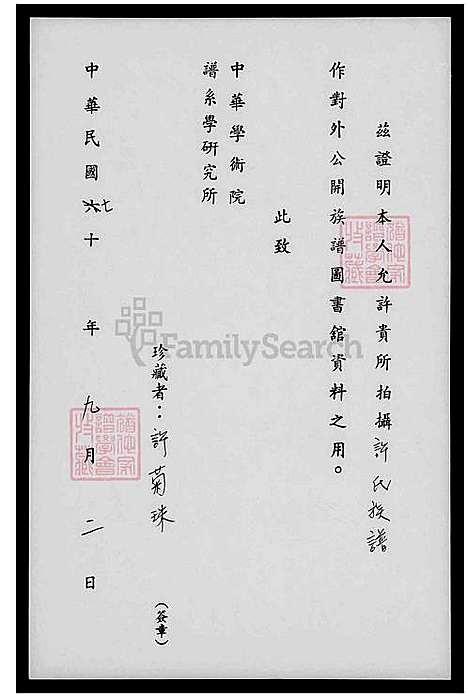 茲證明本人允許貴所拍攝許氏族譜
作對外公開族譜圖書館資料之用。
此致
中華學術院
譜系學研究所
珍藏者：許菊珠
(簽章)
中華民國六七十 年 九月 二 日
FamilySearch